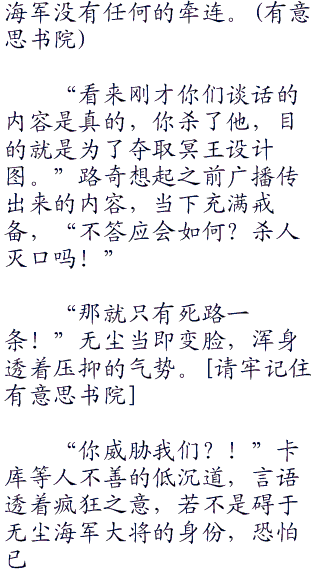 海军没有任何的牵连。(有意
思书院)
“看来刚才你们谈话的
内容是真的，你杀了他，目
的就是为了夺取冥王设计
图。”路奇想起之前广播传
出来的内容，当下充满戒
备，“不答应会如何？杀人
灭口吗！”
“那就只有死路一
条！”无尘当即变脸，浑身
透着压抑的气势。[请牢记住
有意思书院]
“你威胁我们？！”卡
库等人不善的低沉道，言语
透着疯狂之意，若不是碍于
无尘海军大将的身份，恐怕
已